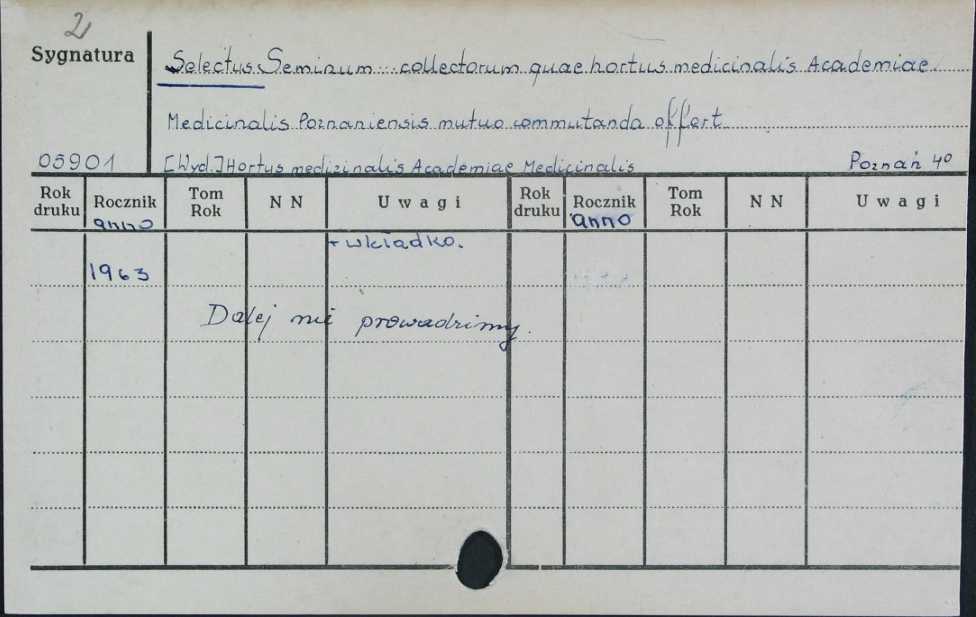 2
Sygnatura
Selectus Seminum ... collectorum quae hortus medicinalis Academiae
Medicinalis Poznaniensis mutuo commutanda offert
05901 [Wyd.] Hortus medizinalis Academiae Medicinalis Poznań 40
Rok druku Rocznik anno Tom Rok N N Uwagi Rok druku Rocznik anno Tom Rok N N Uwagi
+ wkładko.
1963
Dalej nie prowadzimy.